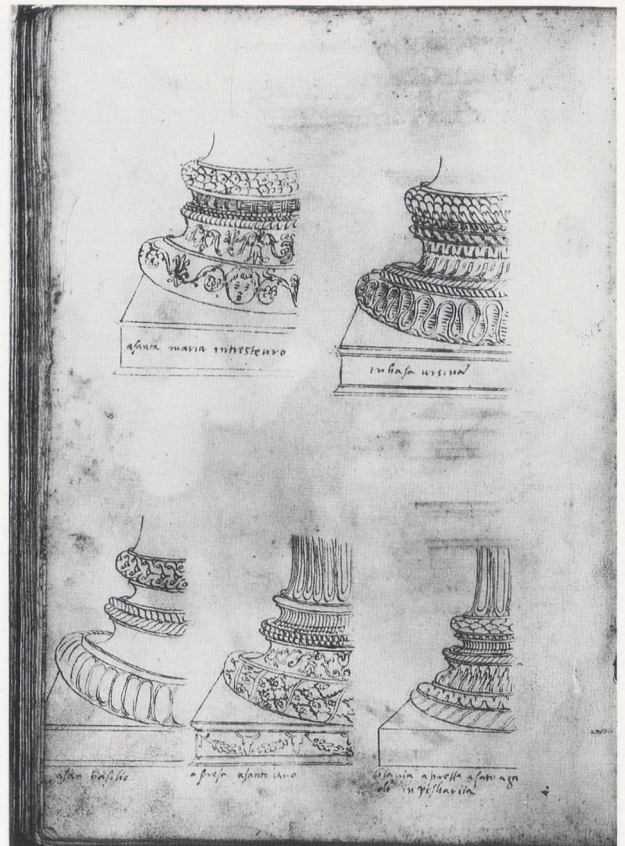 asanta maria intresteuro
in hasa ursina
asan basilio
apresa asanto iano
apressa asato
in pisharia